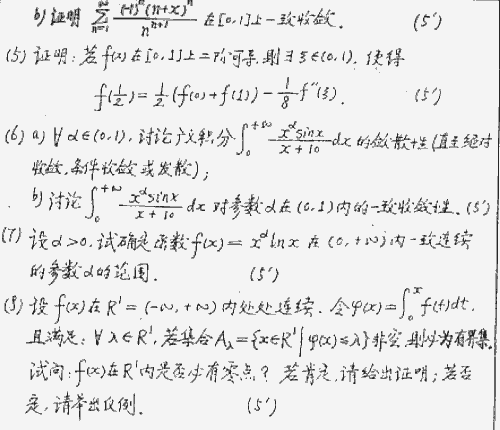 b) 证明 \sum_{n=1}^{∞} \frac{(-1)^n (n+x)^n}{n^{n+1}} 在[0,1]上一致收敛. (5′)
(5) 证明: 若f(x)在[0,1]上二阶可导, 则∃ξ∈(0,1), 使得
f(\frac{1}{2}) = \frac{1}{2}(f(0)+f(1)) - \frac{1}{8}f″(ξ). (5′)
(6) a) ∀α∈(0,1), 讨论广义积分 \int_0^{+∞} \frac{x^α sin x}{x+10} dx 的敛散性(直至绝对
收敛, 条件收敛或发散);
b) 讨论 \int_0^{+∞} \frac{x^α sin x}{x+10} dx 对参数α在(0,1)内的一致收敛性. (5′)
(7) 设α>0, 试确定函数f(x)= x^α ln x 在 (0,+∞)内一致连续
的参数α的范围. (5′)
(8) 设f(x)在R¹=(-∞,+∞)内处处连续. 令φ(x)=\int_0^x f(t)dt,
且满足: ∀λ∈R¹, 若集合A_λ={x∈R¹|φ(x)≤λ}非空, 则必为有界集.
试问: f(x)在R¹内是否必有零点? 若肯定, 请给出证明; 若否
定, 请举出反例. (5′)